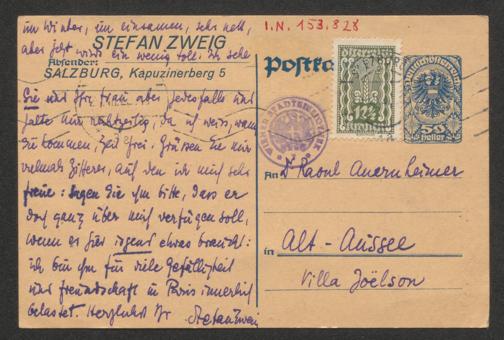 im Winter, im einsamen, sehr nett,
aber jetzt wird ein wenig toll: ich sehe
STEFAN ZWEIG
Absender:
SALZBURG, Kapuzinerberg 5
Sie und Ihre Frau aber jedesfalls und
halte nur rechtzeitig; da ich weiss, wann
Sie kommen, Zeit frei. Grüssen Sie mir
vielmals Zifferer, auf den ich mich sehr
freue: sagen Sie ihm bitte, dass er
doch ganz über mich verfügen soll,
wenn er hier irgend etwas braucht:
ich bin ihm für viele Gefälligkeit
und Freundschaft in Paris innerlich
belastet. Herzlichst Ihr StefanZweig
I.N. 153.828
Postka
12½
Deutschösterreich
50
Heller
WIENER STADTBIBLIOTHEK
An Dr Raoul Auernheimer
in Alt-Aussee
Villa Joëlson